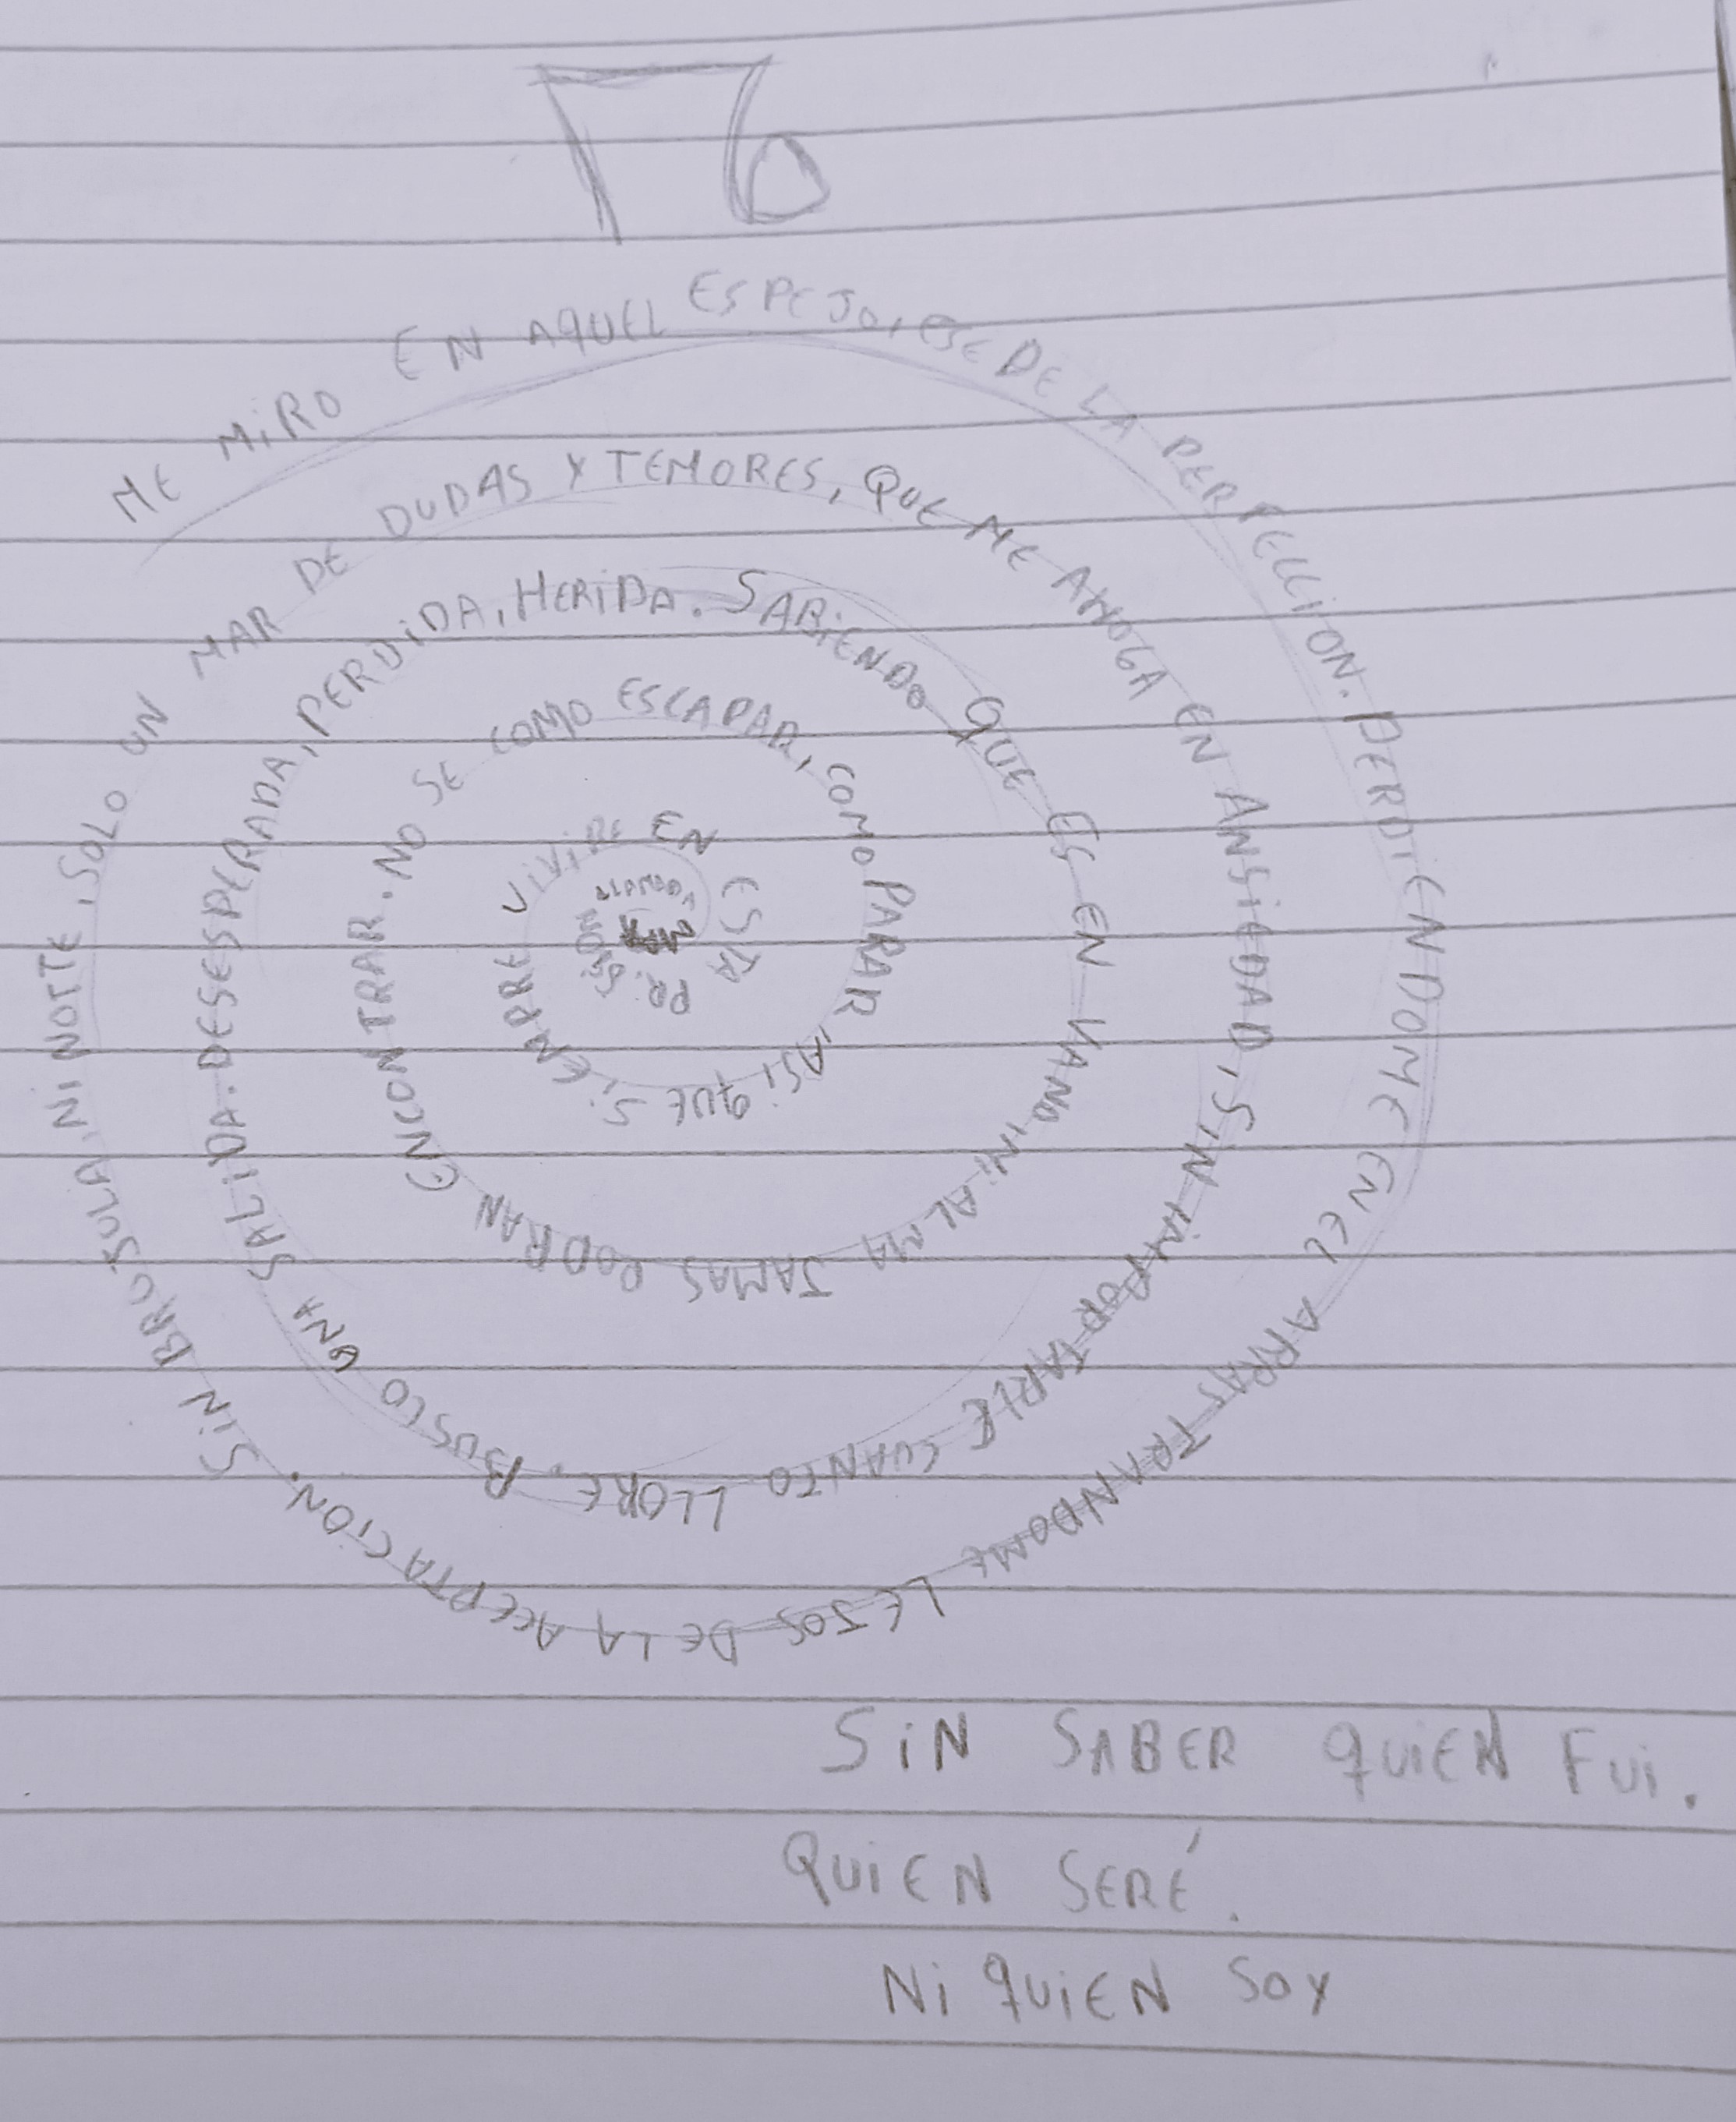 ME MIRO EN AQUEL ESPEJO, ESE DE LA PERFECCION. PERDIENDOME EN EL ARRASTRANDOME LEJOS DE LA ACEPTACION. SIN BRUJULA, NI NOTTE, SOLO UN MAR DE DUDAS Y TEMORES, QUE ME AHOGA EN ANSIEDAD, SIN IMPORTARLE CUANTO LLORE. BUSCO UNA SALIDA. DESESPERADA, PERDIDA, HERIDA. SABIENDO QUE ES EN VANO, NI ALMA JAMAS PODRAN ENCONTRAR. NO SE COMO ESCAPAR, COMO PARAR, ASI QUE SIEMPRE VIVIRE EN ESTA PRISION
SIN SABER QUIEN FUI.
QUIEN SERÉ.
NI QUIEN SOY